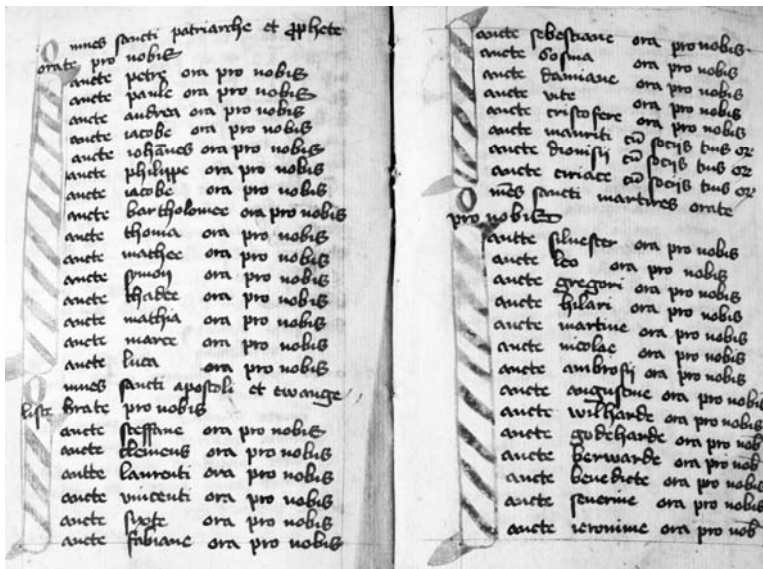 Omnes sancti patriarche et prophete
orate pro nobis
ancte petre ora pro nobis
ancte paule ora pro nobis
ancte andrea ora pro nobis
ancte iacobe ora pro nobis
ancte iohānes ora pro nobis
ancte philippe ora pro nobis
ancte iacobe ora pro nobis
ancte bartholomee ora pro nobis
ancte thoma ora pro nobis
ancte mathee ora pro nobis
ancte symon ora pro nobis
ancte thadee ora pro nobis
ancte mathia ora pro nobis
ancte marce ora pro nobis
ancte luca ora pro nobis
Omnes sancti apostoli et ewange/
liste Orate pro nobis
ancte steffane ora pro nobis
ancte clemens ora pro nobis
ancte laurenti ora pro nobis
ancte vincenti ora pro nobis
ancte sixte ora pro nobis
ancte fabiane ora pro nobis
ancte sebestiane ora pro nobis
ancte Cosma ora pro nobis
ancte damiane ora pro nobis
ancte vite ora pro nobis
ancte cristofere ora pro nobis
ancte mauriti cū socijs tuis or
ancte dionisii cū socijs tuis or
ancte ciriace cū socijs tuis or
Omēs sancti martires orate
pro nobis
ancte siluester ora pro nobis
ancte leo ora pro nobis
ancte gregori ora pro nobis
ancte hilari ora pro nobis
ancte martine ora pro nobis
ancte nicolae ora pro nobis
ancte ambrosii ora pro nobis
ancte augustine ora pro nobis
ancte wilharde ora pro nobis
ancte godeharde ora pro nob
ancte berwarde ora pro nob
ancte benedicte ora pro nobis
ancte seuerine ora pro nobis
ancte ieronime ora pro nob